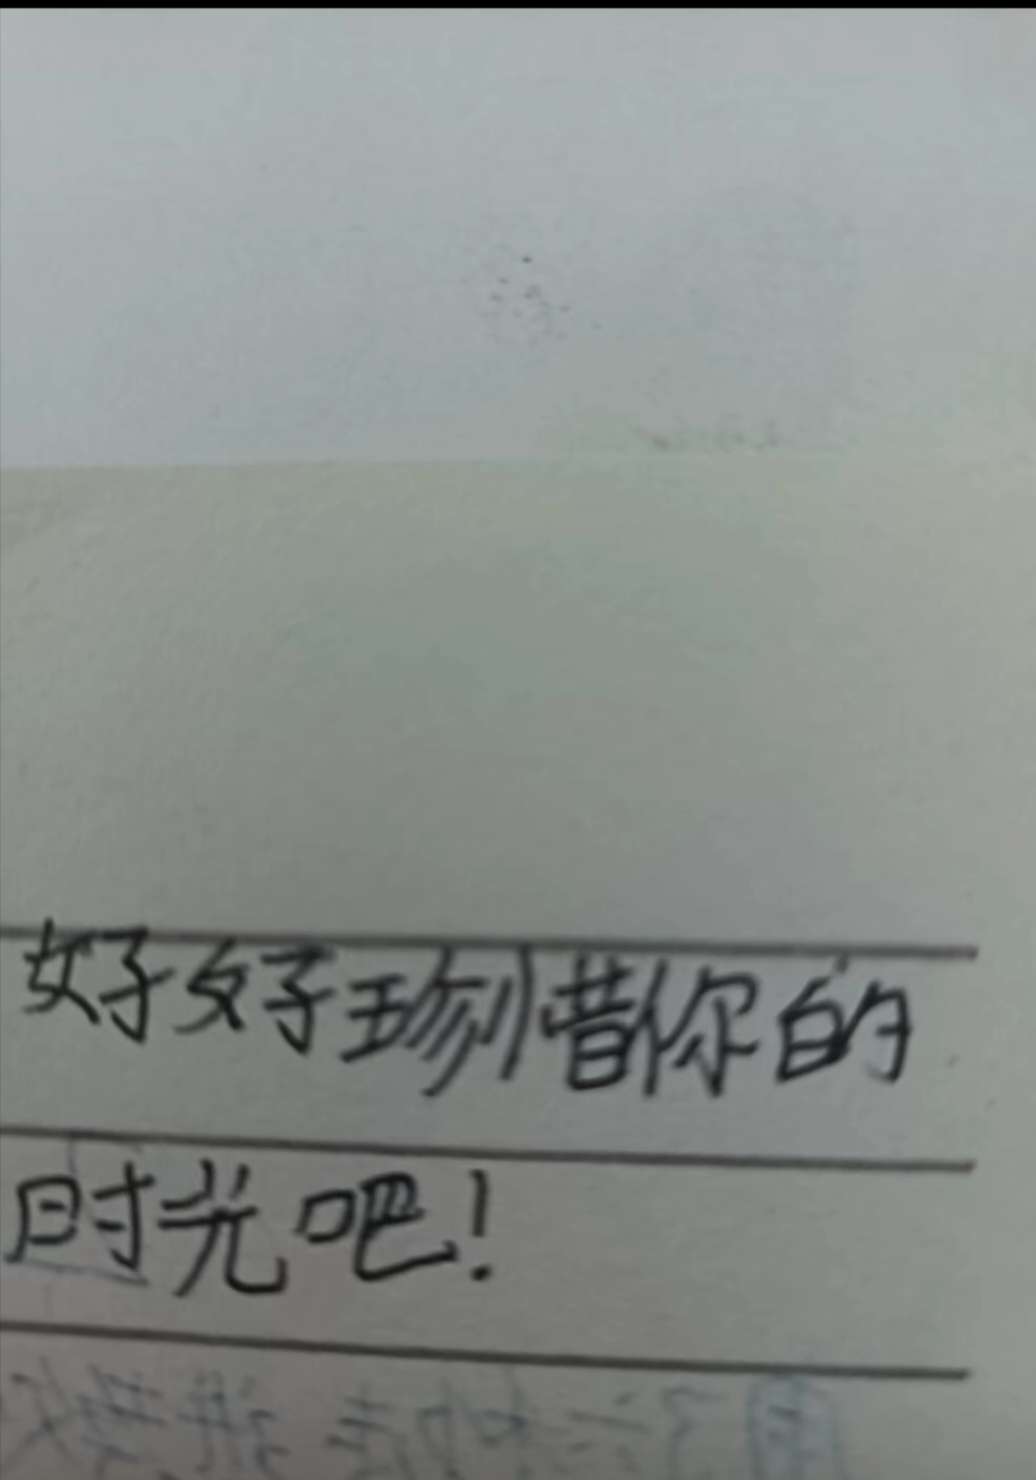 好好珍惜你的
时光吧!